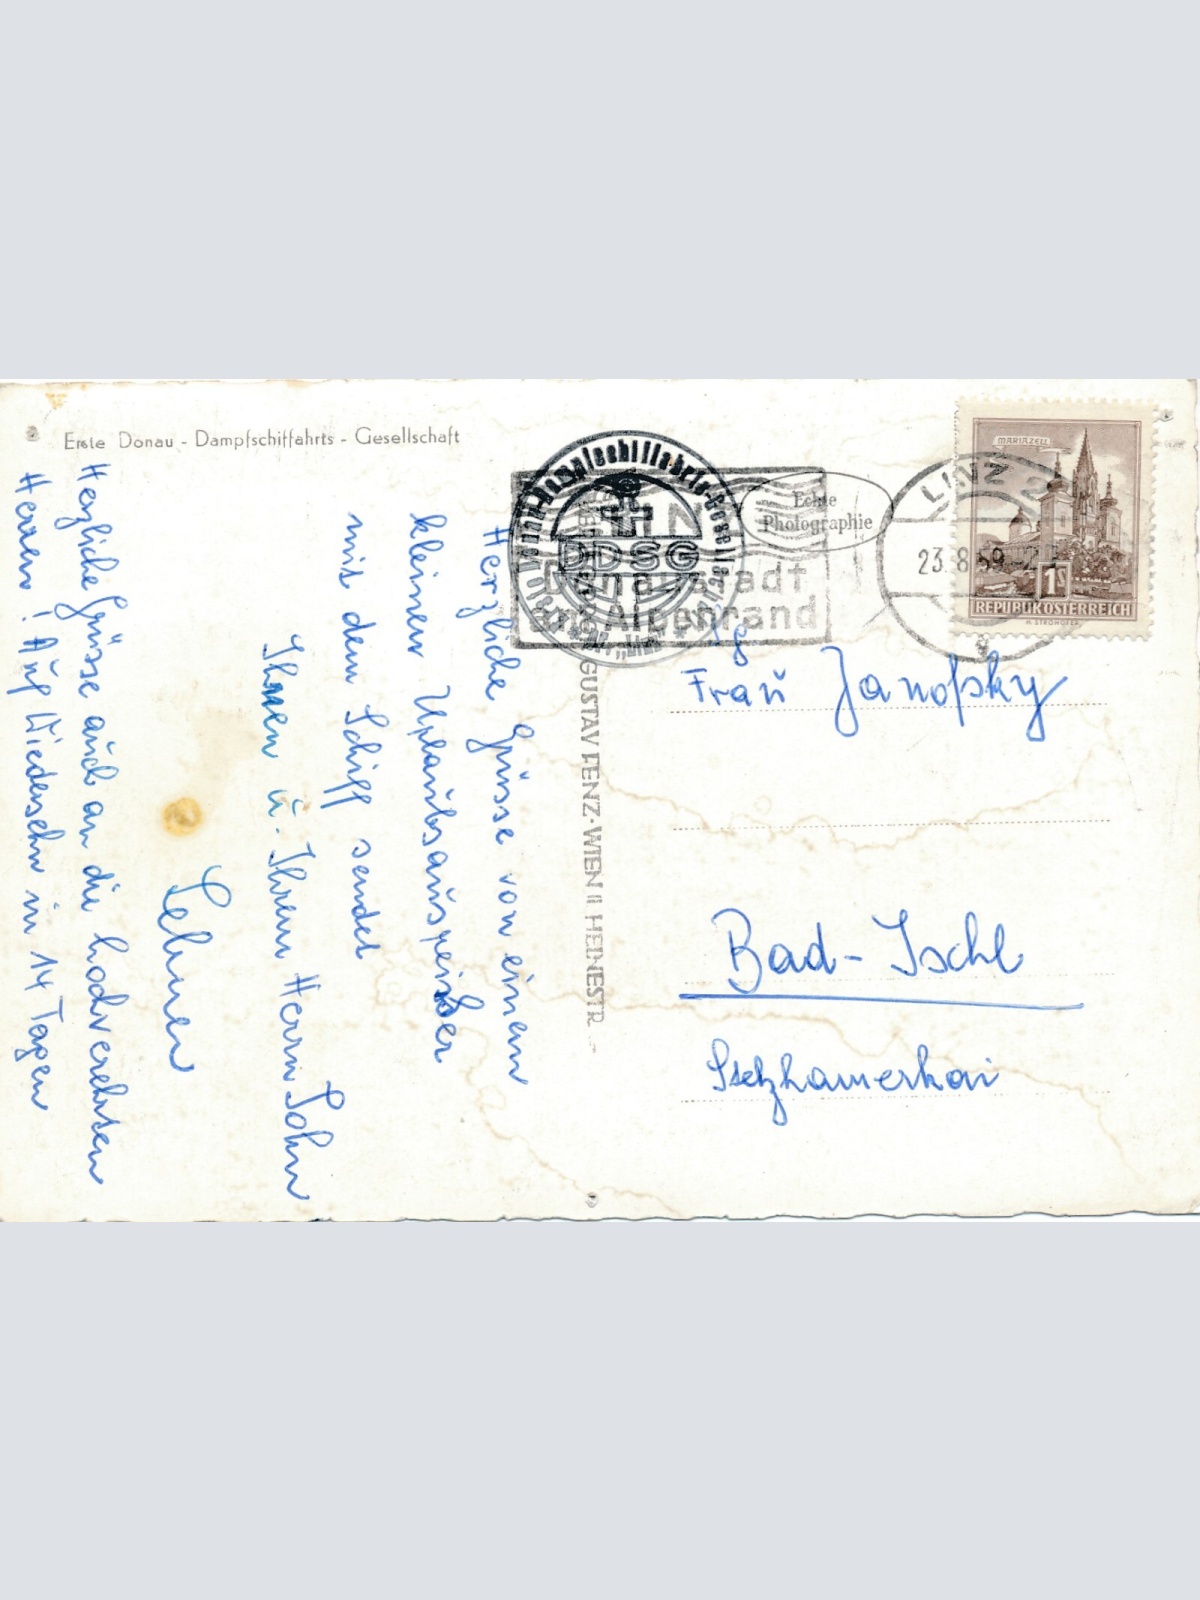 Erste Donau - Dampfschiffahrts - Gesellschaft
Herzliche Grüsse von einem
kleinen Urlaubsausreisser
mit dem Schiff sendet
Ihnen u. Ihrem Herrn Sohn
Herzliche Grüsse auch an die hochverehrten
Herren! Auf Wiedersehn in 14 Tagen
GUSTAV FENZ·WIEN II HEINESTR.
DDSG
Donaustadt
am Alpenrand
Echte
Photographie
LINZ 2
23.8.59
MARIAZELL
1S
REPUBLIK ÖSTERREICH
H. STROHOFER
Frau Janofsky
Bad-Ischl
Stelzhamerkai